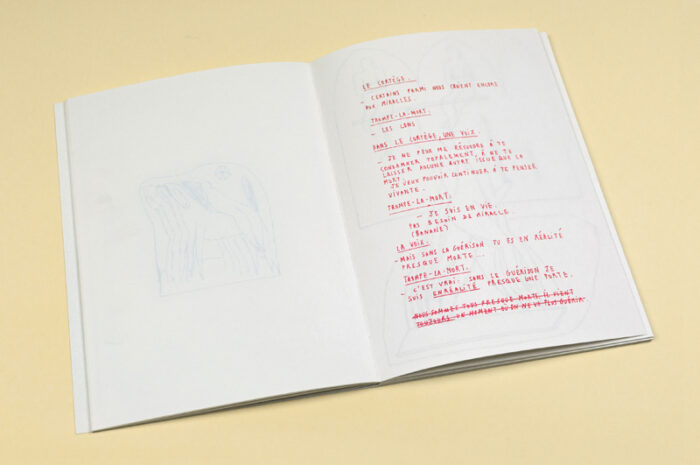 LE CORTÈGE...
- CERTAINS PARMI NOUS CROIENT ENCORE
AUX MIRACLES.
TROMPE-LA-MORT.
- LES CONS
DANS LE CORTÈGE, UNE VOIX.
- JE NE PEUX ME RÉSOUDRE À TE
CONDAMNER TOTALEMENT, À NE TE
LAISSER AUCUNE AUTRE ISSUE QUE LA
MORT.
JE VEUX POUVOIR CONTINUER À TE PENSER
VIVANTE.
TROMPE-LA-MORT.
- JE SUIS EN VIE.
PAS BESOIN DE MIRACLE.
(BANANE)
LA VOIX.
- MAIS SANS LA GUÉRISON TU ES EN RÉALITÉ
PRESQUE MORTE...
TROMPE-LA-MORT.
- C'EST VRAI. SANS LE GUÉRIDON JE
SUIS EN RÉALITÉ PRESQUE UNE PORTE.
NOUS SOMMES TOUS PRESQUE MORTS. IL VIENT
TOUJOURS UN MOMENT OÙ ON NE VA PLUS GUÉRIR.